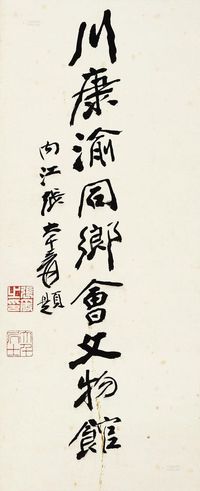 川康渝同鄉會文物館
內江張大千爰題